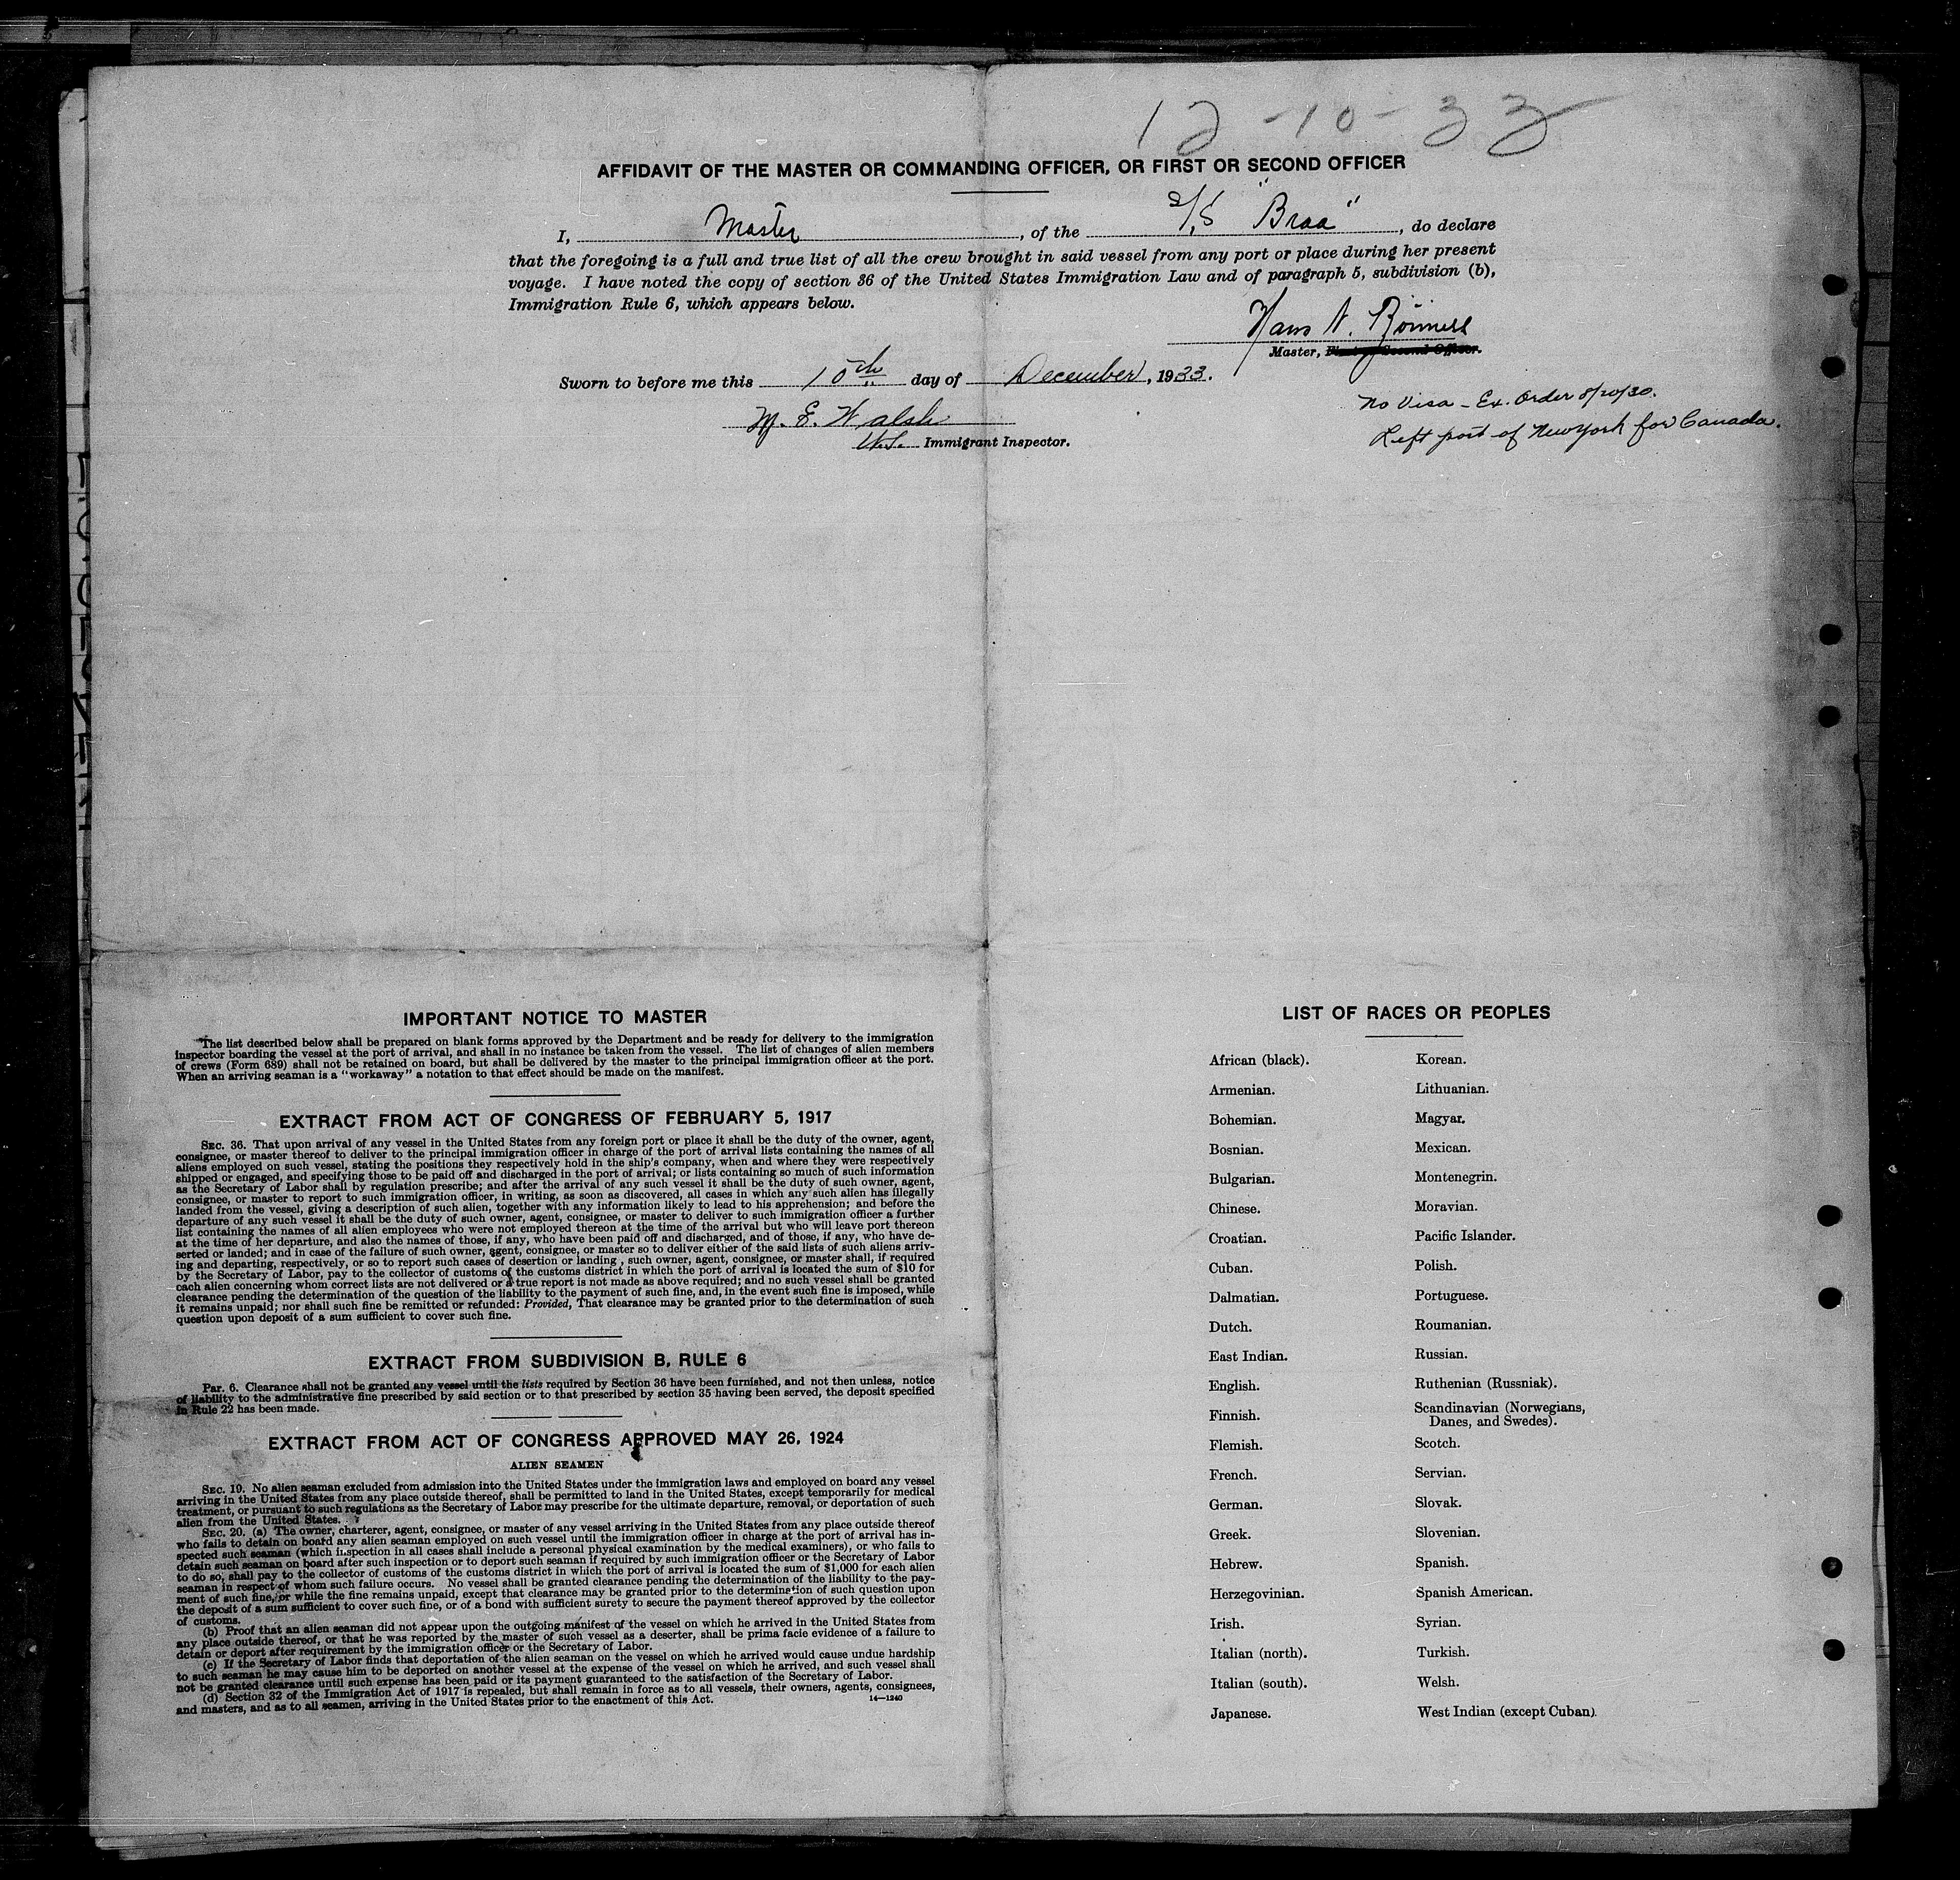 12-10-33
AFFIDAVIT OF THE MASTER OR COMMANDING OFFICER, OR FIRST OR SECOND OFFICER
I, Master, of the S/S "Braa", do declare
that the foregoing is a full and true list of all the crew brought in said vessel from any port or place during her present
voyage. I have noted the copy of section 36 of the United States Immigration Law and of paragraph 5, subdivision (b),
Immigration Rule 6, which appears below.
Hans N.
Master, First or Second Officer.
Sworn to before me this 10th day of December, 1933.
No Visa - Ex. Order 8/20/30.
M. E. Walsh
Left port of New York for Canada.
U.S. Immigrant Inspector.
IMPORTANT NOTICE TO MASTER
The list described below shall be prepared on blank forms approved by the Department and be ready for delivery to the immigration
inspector boarding the vessel at the port of arrival, and shall in no instance be taken from the vessel. The list of changes of alien members
of crews (Form 689) shall not be retained on board, but shall be delivered by the master to the principal immigration officer at the port.
When an arriving seaman is a "workaway" a notation to that effect should be made on the manifest.
EXTRACT FROM ACT OF CONGRESS OF FEBRUARY 5, 1917
SEC. 36. That upon arrival of any vessel in the United States from any foreign port or place it shall be the duty of the owner, agent,
consignee, or master thereof to deliver to the principal immigration officer in charge of the port of arrival lists containing the names of all
aliens employed on such vessel, stating the positions they respectively hold in the ship's company, when and where they were respectively
shipped or engaged, and specifying those to be paid off and discharged in the port of arrival; or lists containing so much of such information
as the Secretary of Labor shall by regulation prescribe; and after the arrival of any such vessel it shall be the duty of such owner, agent,
consignee, or master to report to such immigration officer, in writing, as soon as discovered, all cases in which any such alien has illegally
landed from the vessel, giving a description of such alien, together with any information likely to lead to his apprehension; and before the
departure of any such vessel it shall be the duty of such owner, agent, consignee, or master to deliver to such immigration officer a further
list containing the names of all alien employees who were not employed thereon at the time of the arrival but who will leave port thereon
at the time of her departure, and also the names of those, if any, who have been paid off and discharged, and of those, if any, who have de-
serted or landed; and in case of the failure of such owner, agent, consignee, or master so to deliver either of the said lists of such aliens arriv-
ing and departing, respectively, or so to report such cases of desertion or landing , such owner, agent, consignee, or master shall, if required
by the Secretary of Labor, pay to the collector of customs of the customs district in which the port of arrival is located the sum of $10 for
each alien concerning whom correct lists are not delivered or a true report is not made as above required; and no such vessel shall be granted
clearance pending the determination of the question of the liability to the payment of such fine, and, in the event such fine is imposed, while
it remains unpaid; nor shall such fine be remitted or refunded: Provided, That clearance may be granted prior to the determination of such
question upon deposit of a sum sufficient to cover such fine.
EXTRACT FROM SUBDIVISION B, RULE 6
Par. 6. Clearance shall not be granted any vessel until the lists required by Section 36 have been furnished, and not then unless, notice
of liability to the administrative fine prescribed by said section or to that prescribed by section 35 having been served, the deposit specified
in Rule 22 has been made.
EXTRACT FROM ACT OF CONGRESS APPROVED MAY 26, 1924
ALIEN SEAMEN
SEC. 19. No alien seaman excluded from admission into the United States under the immigration laws and employed on board any vessel
arriving in the United States from any place outside thereof, shall be permitted to land in the United States, except temporarily for medical
treatment, or pursuant to such regulations as the Secretary of Labor may prescribe for the ultimate departure, removal, or deportation of such
alien from the United States.
SEC. 20. (a) The owner, charterer, agent, consignee, or master of any vessel arriving in the United States from any place outside thereof
who fails to detain on board any alien seaman employed on such vessel until the immigration officer in charge at the port of arrival has in-
spected such seaman (which inspection in all cases shall include a personal physical examination by the medical examiners), or who fails to
detain such seaman on board after such inspection or to deport such seaman if required by such immigration officer or the Secretary of Labor
to do so, shall pay to the collector of customs of the customs district in which the port of arrival is located the sum of $1,000 for each alien
seaman in respect of whom such failure occurs. No vessel shall be granted clearance pending the determination of the liability to the pay-
ment of such fine, or while the fine remains unpaid, except that clearance may be granted prior to the determination of such question upon
the deposit of a sum sufficient to cover such fine, or of a bond with sufficient surety to secure the payment thereof approved by the collector
of customs.
(b) Proof that an alien seaman did not appear upon the outgoing manifest of the vessel on which he arrived in the United States from
any place outside thereof, or that he was reported by the master of such vessel as a deserter, shall be prima facie evidence of a failure to
detain or deport after requirement by the immigration officer or the Secretary of Labor.
(c) If the Secretary of Labor finds that deportation of the alien seaman on the vessel on which he arrived would cause undue hardship
to such seaman he may cause him to be deported on another vessel at the expense of the vessel on which he arrived, and such vessel shall
not be granted clearance until such expense has been paid or its payment guaranteed to the satisfaction of the Secretary of Labor.
(d) Section 32 of the Immigration Act of 1917 is repealed, but shall remain in force as to all vessels, their owners, agents, consignees,
and masters, and as to all seamen, arriving in the United States prior to the enactment of this Act. 14—1240
LIST OF RACES OR PEOPLES
African (black).
Armenian.
Bohemian.
Bosnian.
Bulgarian.
Chinese.
Croatian.
Cuban.
Dalmatian.
Dutch.
East Indian.
English.
Finnish.
Flemish.
French.
German.
Greek.
Hebrew.
Herzegovinian.
Irish.
Italian (north).
Italian (south).
Japanese.
Korean.
Lithuanian.
Magyar.
Mexican.
Montenegrin.
Moravian.
Pacific Islander.
Polish.
Portuguese.
Roumanian.
Russian.
Ruthenian (Russniak).
Scandinavian (Norwegians,
Danes, and Swedes).
Scotch.
Servian.
Slovak.
Slovenian.
Spanish.
Spanish American.
Syrian.
Turkish.
Welsh.
West Indian (except Cuban).